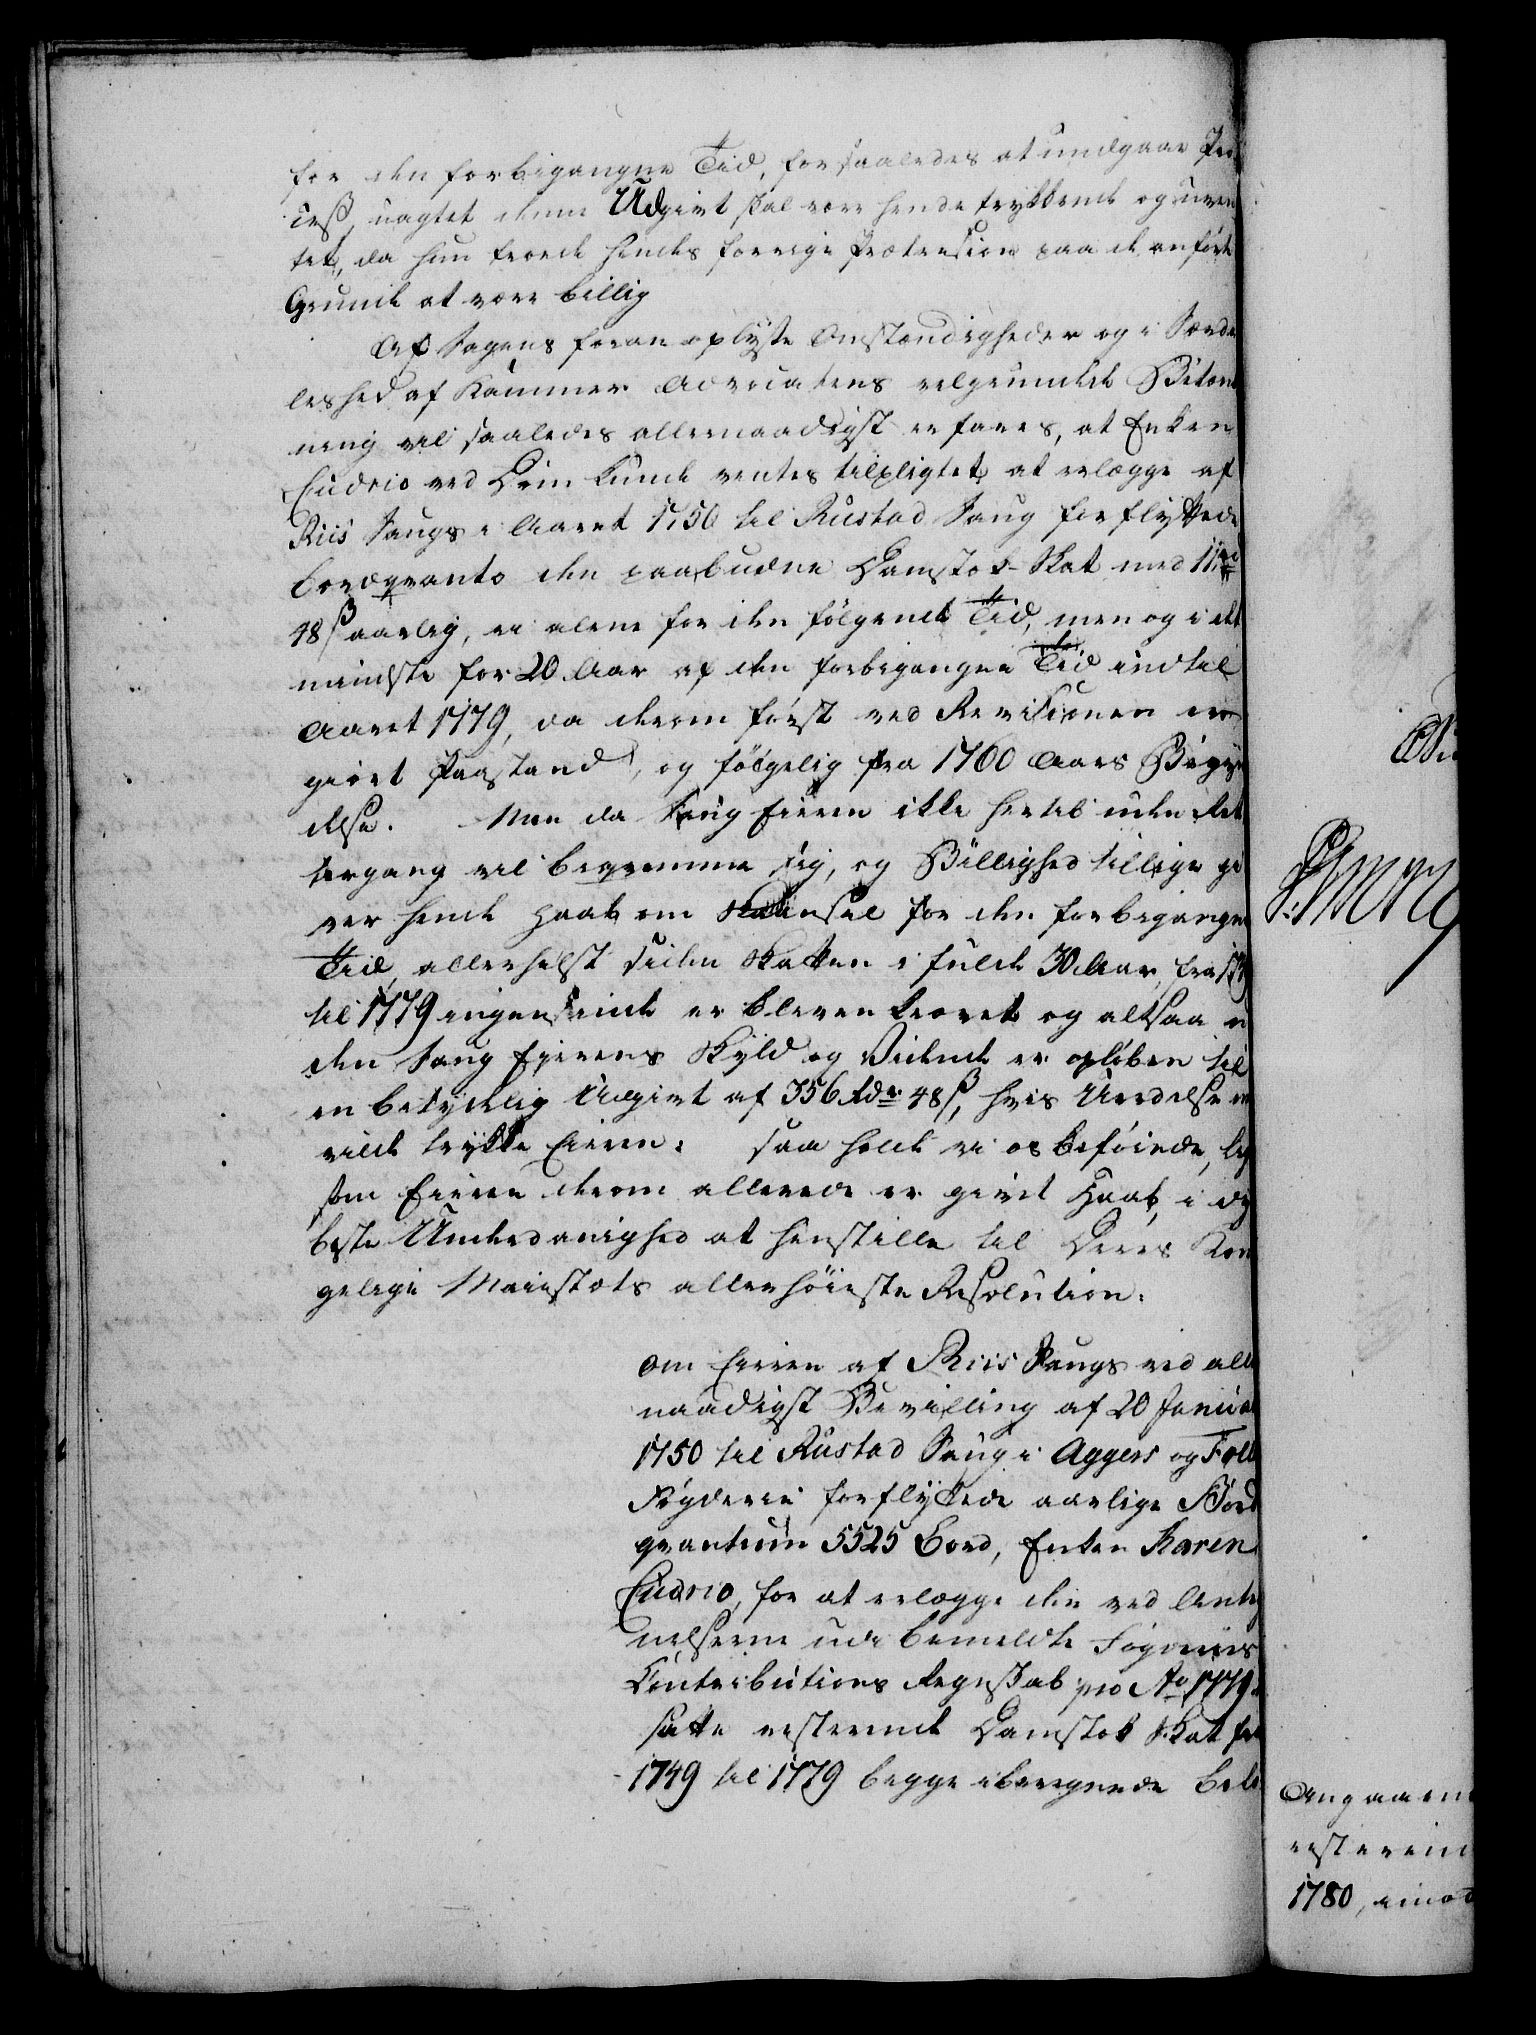 for den forbigangne Tid, for saaledes at undgaae Pro
ceß, uagtet denne Udgivt skal være hende trykkende og uven
tet, da hun troede hendes forrige Prætension paa de anførte
Grunde at være billig
Af Sagens foran oplyste Omstændigheder og i Særde
leshed af Kammer Advocatens velgrundede Betænk
ning vil saaledes allernaadigst erfares, at Enken
Cudrio ved Dom kunde ventes tilpligtet at erlægge af
Riis Saugs i Aaret 1750 til Rustad Saug forflyttede
bordqvanto den paabudne Damstok-Skat med 11 rd
48 ß aarlig, ei alene for den følgende Tid, men og i det
mindste for 20 Aar af den forbigangne Tid indtil
Aaret 1779, da derom først ved Revisionen er
giort Paastand, og følgelig fra 1760 Aars Begyn
delse. Men da Saug Eieren ikke hertil uden Ret
tergang vil beqvemme sig, og Billighed tillige gi
ver hende Haab om Skaansel for den forbigangne
Tid, allerhelst siden Skatten i fulde 30 Aar, fra 1749
til 1779 ingensinde er bleven krævet og altsaa u
den Saug Eierens Skyld og Vidende er opløben til
en betydelig Udgivt af 356 rdr 48 ß, hvis Uredelse
vilde trykke Eieren: saa holde vi os beføiede, lige
som Eieren derom allerede er givet Haab, i dy
beste Underdanighed at henstille til Deres Kon
gelige Majestæts allerhøieste Resolution:
om Eieren af Riis Saugs ved aller
naadigst Bevilling af 20 Januar
1750 til Rustad Saug i Aggers og Follo
Fogderie forflyttede aarlige Bord
qvantum 5525 Bord, Enken Karen
Cudrio, for at erlægge den ved Anteg
nelserne udi bemeldte Fogderies
Contributions Regnskab pro Ao 1779
satte resterende Damstok Skat fra
1749 til 1779 begge iberegnede bele
Angaaen
resterend
1780, imod